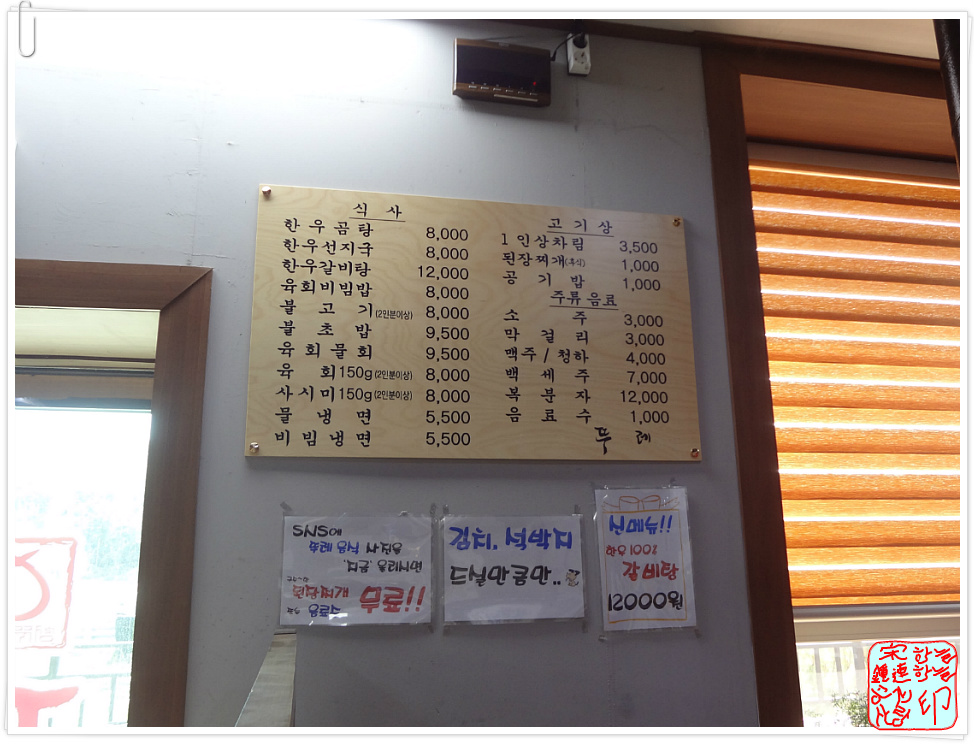 식 사
한 우 곰 탕 8,000
한우선지국 8,000
한우갈비탕 12,000
육회비빔밥 8,000
불 고 기 (2인분이상) 8,000
불 초 밥 9,500
육 회 물 회 9,500
육 회 150g (2인분이상) 8,000
사 시 미 150g (2인분이상) 8,000
물 냉 면 5,500
비 빔 냉 면 5,500
고 기 상
1 인상차림 3,500
된장찌개(후식) 1,000
공 기 밥 1,000
주류 음료
소 주 3,000
막 걸 리 3,000
맥주 / 청하 4,000
백 세 주 7,000
복 분 자 12,000
음 료 수 1,000
뚜 레
SNS에
된장찌개
음료수 무료!!
김치. 석박지
드실만큼만..
신메뉴!!
한우100%
갈비탕
12000원
宋
한늘
한늘
印